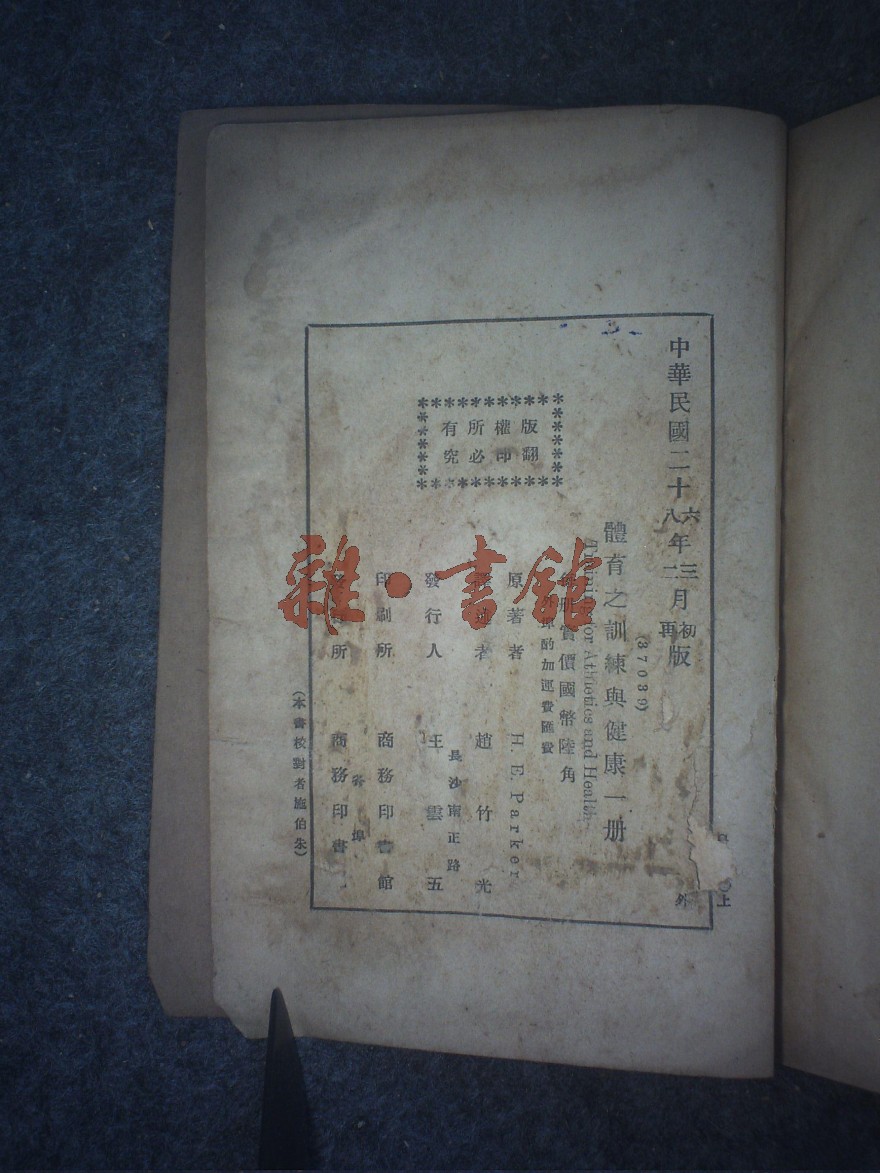 中華民國二十六年三月初版
八 二 再
(37039)
體育之訓練與健康一册
Training for Athletics and Health
每册實價國幣陸角
外埠酌加運費匯費
版權所有
翻印必究
原著者 H. E. Parker
譯述者 趙竹光
發行人 王雲五
長沙南正路
印刷所 商務印書館
各埠
發行所 商務印書
(本書校對者施伯朱)
外
上
雜·書館